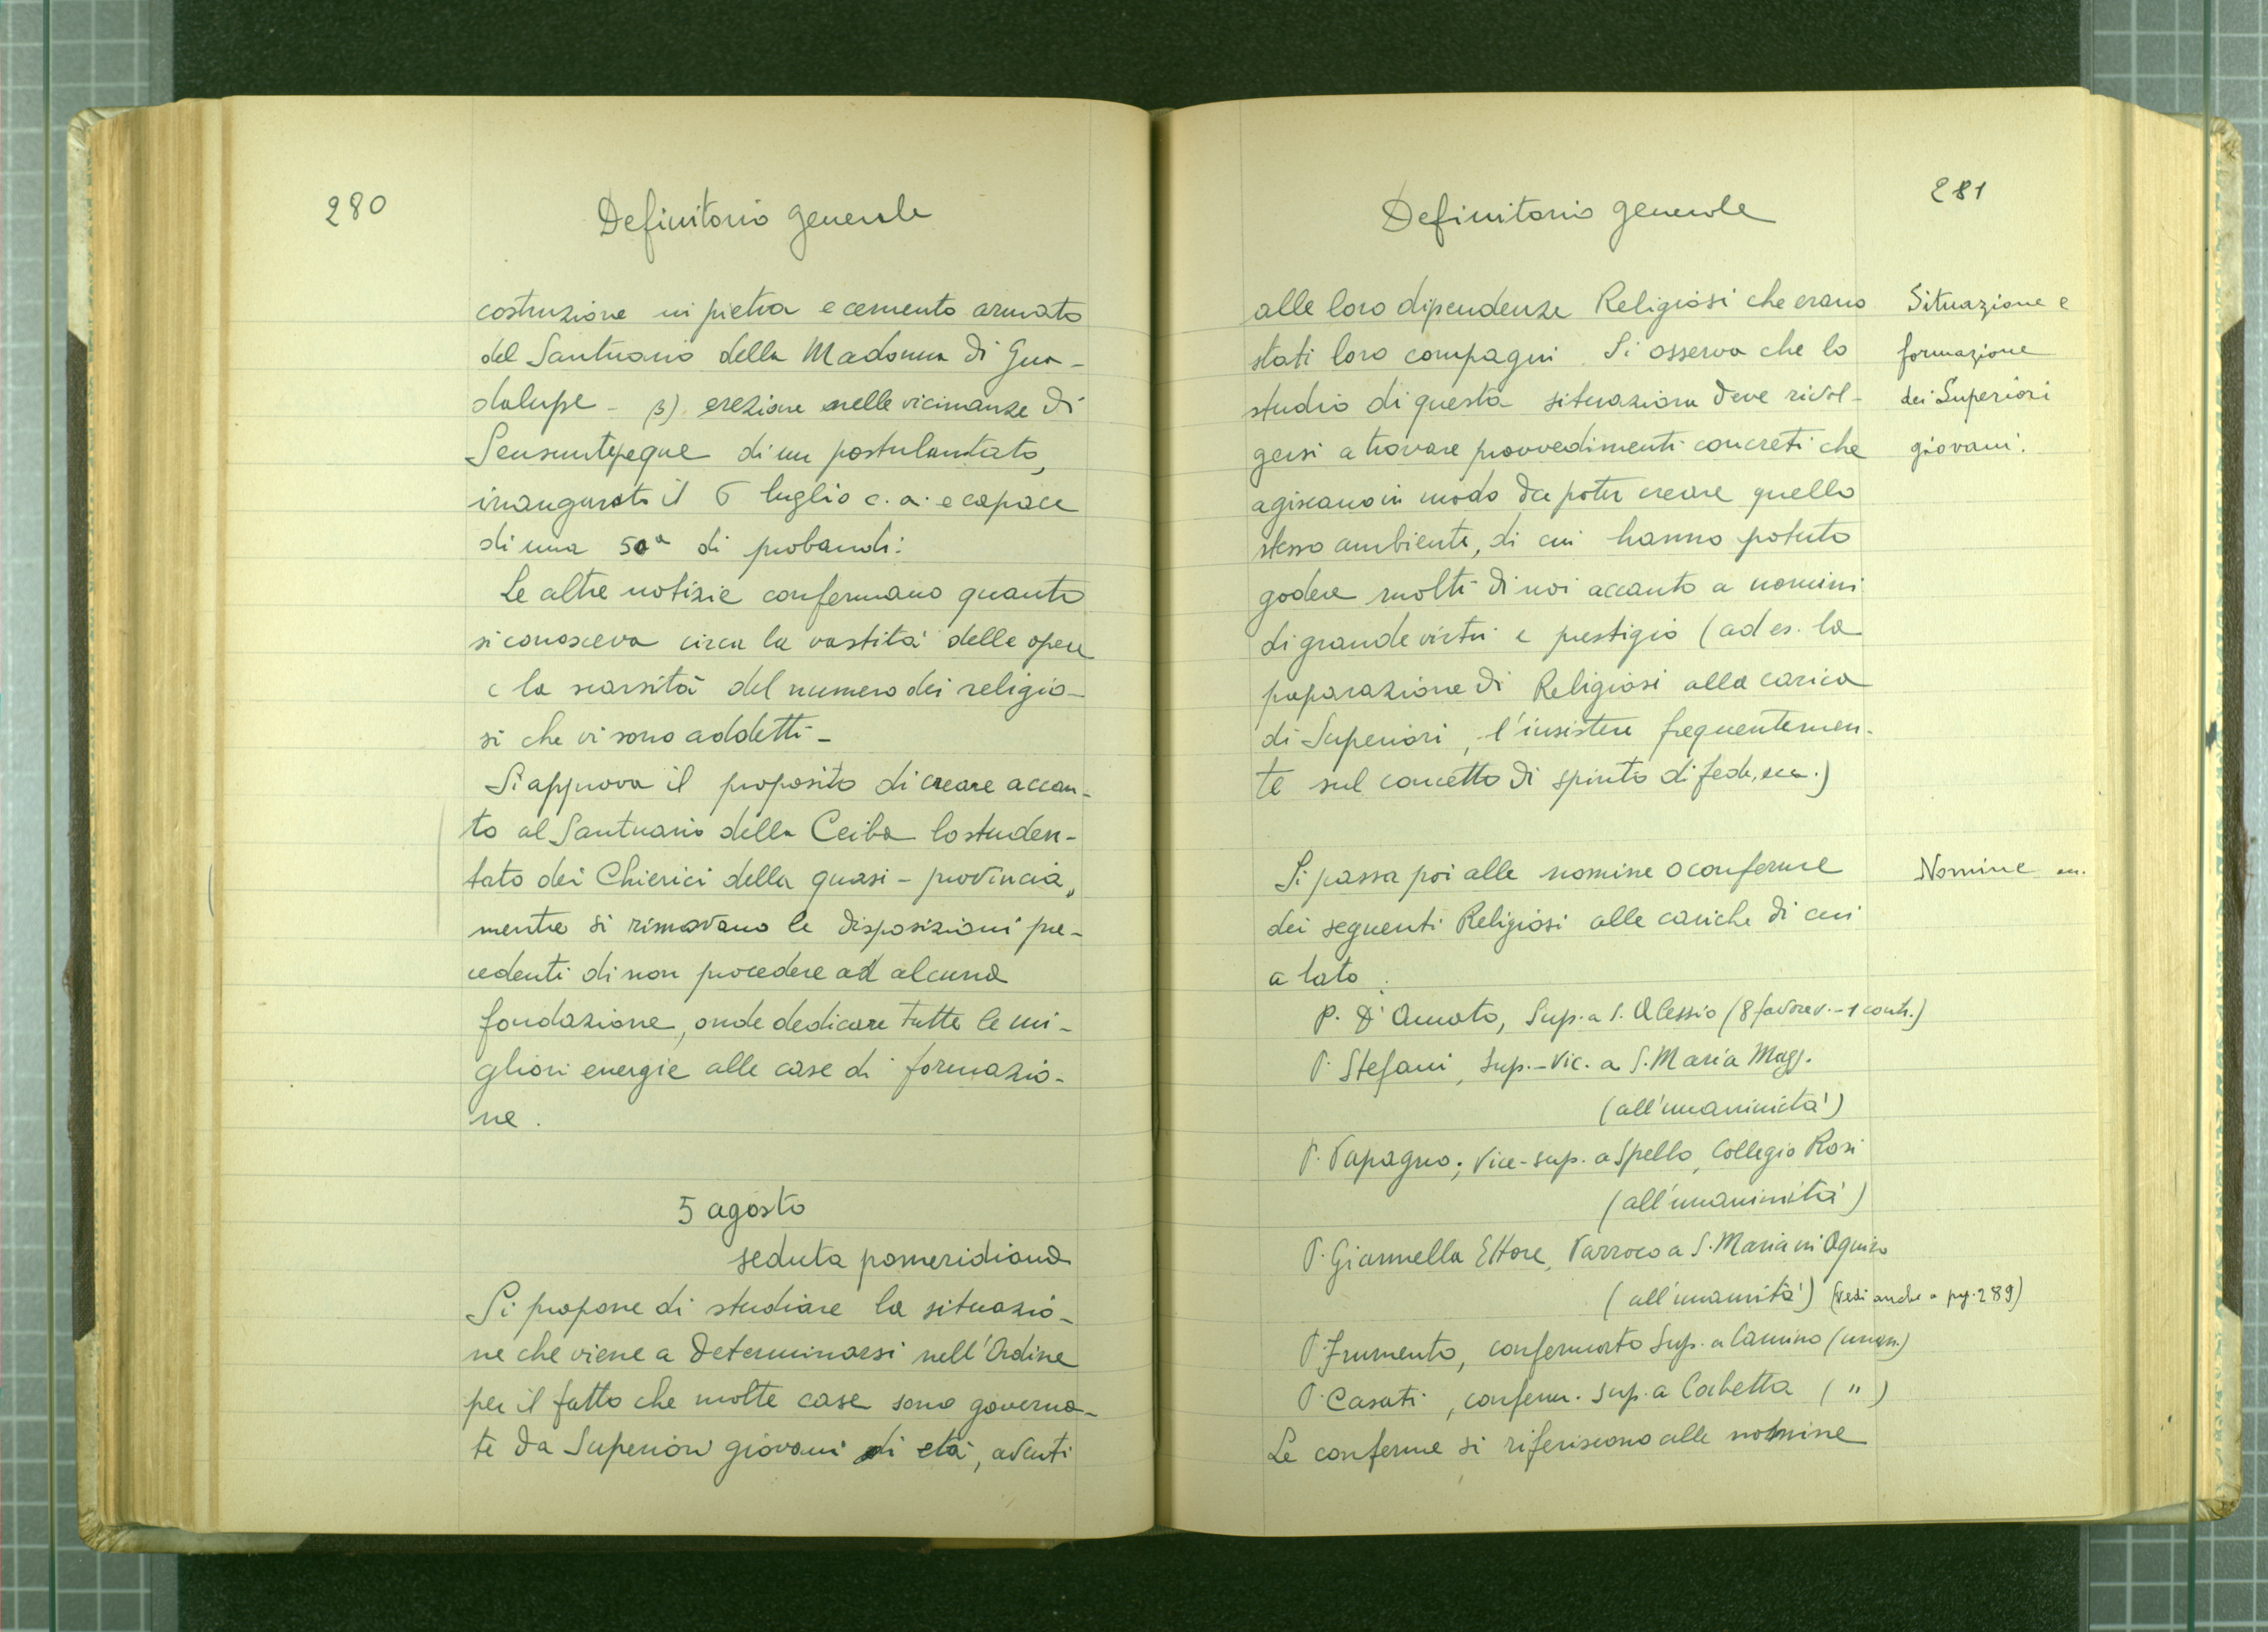 280
Definitorio generale
costruzione in pietra e cemento armato
del Santuario della Madonna di Gua-
dalupe - 3) erezione nelle vicinanze di
Sensuntepeque di un postulantato,
inaugurato il 6 luglio c. a. e capace
di una 50ª di probandi.
Le altre notizie confermano quanto
si conosceva circa la vastità delle opere
e la scarsità del numero dei religio-
si che vi sono addetti -
Si approva il proposito di creare accan-
to al Santuario della Ceiba lo studen-
tato dei Chierici della quasi - provincia,
mentre si rinnovano le disposizioni pre-
cedenti di non procedere ad alcuna
fondazione, onde dedicare tutte le mi-
gliori energie alle case di formazio-
ne.
5 agosto
seduta pomeridiana
Si propone di studiare la situazio-
ne che viene a determinarsi nell'Ordine
per il fatto che molte case sono governa-
te da Superiori giovani di età, aventi
281
Definitorio generale
alle loro dipendenze Religiosi che erano
stati loro compagni. Si osserva che lo
studio di questa situazione deve rivol-
gersi a trovare provvedimenti concreti che
agiscano in modo da poter creare quello
stesso ambiente, di cui hanno potuto
godere molti di noi accanto a uomini
di grande virtù e prestigio (ad es. la
preparazione di Religiosi alla carica
di Superiori, l'insistere frequentemen-
te sul concetto di spirito di fede, ecc.)
Situazione e
formazione
dei Superiori
giovani.
Si passa poi alle nomine o conferme
dei seguenti Religiosi alle cariche di cui
a lato:
Nomine
P. D'Amato, Sup. a S. Alessio (8 favorev. - 1 contr.)
P. Stefani, Sup. - Vic. a S. Maria Magg.
(all'unanimità)
P. Papagno, Vice-sup. a Spello, Collegio Rosi
(all'unanimità)
P. Giannella Ettore, Parroco a S. Maria in Aquiro
(all'unanimità) (Vedi anche a pg. 289)
P. Frumento, confermato Sup. a Camino (unan.)
P. Casati, conferm. Sup. a Corbetta ( " )
Le conferme si riferiscono alle nomine